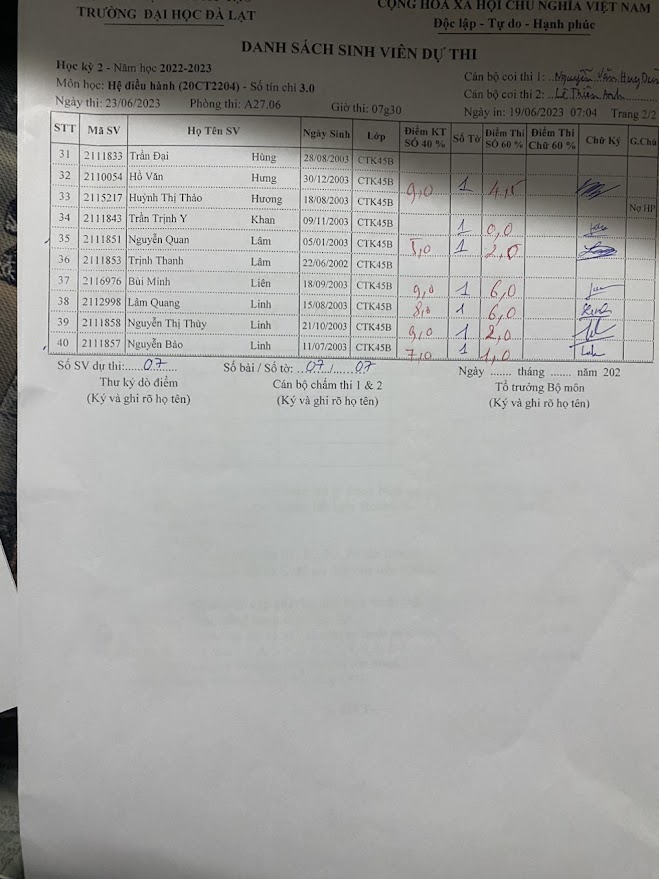 TRƯỜNG ĐẠI HỌC ĐÀ LẠT
CỘNG HOÀ XÃ HỘI CHỦ NGHĨA VIỆT NAM
Độc lập - Tự do - Hạnh phúc
DANH SÁCH SINH VIÊN DỰ THI
Học kỳ 2 - Năm học 2022-2023
Cán bộ coi thi 1: Nguyễn Văn Huy Dũng
Môn học: Hệ điều hành (20CT2204) - Số tín chỉ 3.0
Cán bộ coi thi 2: Lê Thiên Anh
Ngày thi: 23/06/2023 Phòng thi: A27.06 Giờ thi: 07g30 Ngày in: 19/06/2023 07:04 Trang 2/2
STT Mã SV Họ Tên SV Ngày Sinh Lớp Điểm KT SỐ 40 % Số Tờ Điểm Thi SỐ 60 % Điểm Thi Chữ 60 % Chữ Ký G.Chú
31 2111833 Trần Đại Hùng 28/08/2003 CTK45B
32 2110054 Hồ Văn Hưng 30/12/2003 CTK45B 9,0 1 4,5
33 2115217 Huỳnh Thị Thảo Hương 18/08/2003 CTK45B Nợ HP
34 2111843 Trần Trịnh Y Khan 09/11/2003 CTK45B 1 0,0
35 2111851 Nguyễn Quan Lâm 05/01/2003 CTK45B 5,0 1 2,0
36 2111853 Trịnh Thanh Lâm 22/06/2002 CTK45B
37 2116976 Bùi Minh Liên 18/09/2003 CTK45B 9,0 1 6,0
38 2112998 Lâm Quang Linh 15/08/2003 CTK45B 8,0 1 6,0
39 2111858 Nguyễn Thị Thùy Linh 21/10/2003 CTK45B 9,0 1 2,0
40 2111857 Nguyễn Bảo Linh 11/07/2003 CTK45B 7,0 1 1,0
Số SV dự thi: 07 Số bài / Số tờ: 07 / 07 Ngày ...... tháng ...... năm 202
Thư ký dò điểm Cán bộ chấm thi 1 & 2 Tổ trưởng Bộ môn
(Ký và ghi rõ họ tên) (Ký và ghi rõ họ tên) (Ký và ghi rõ họ tên)